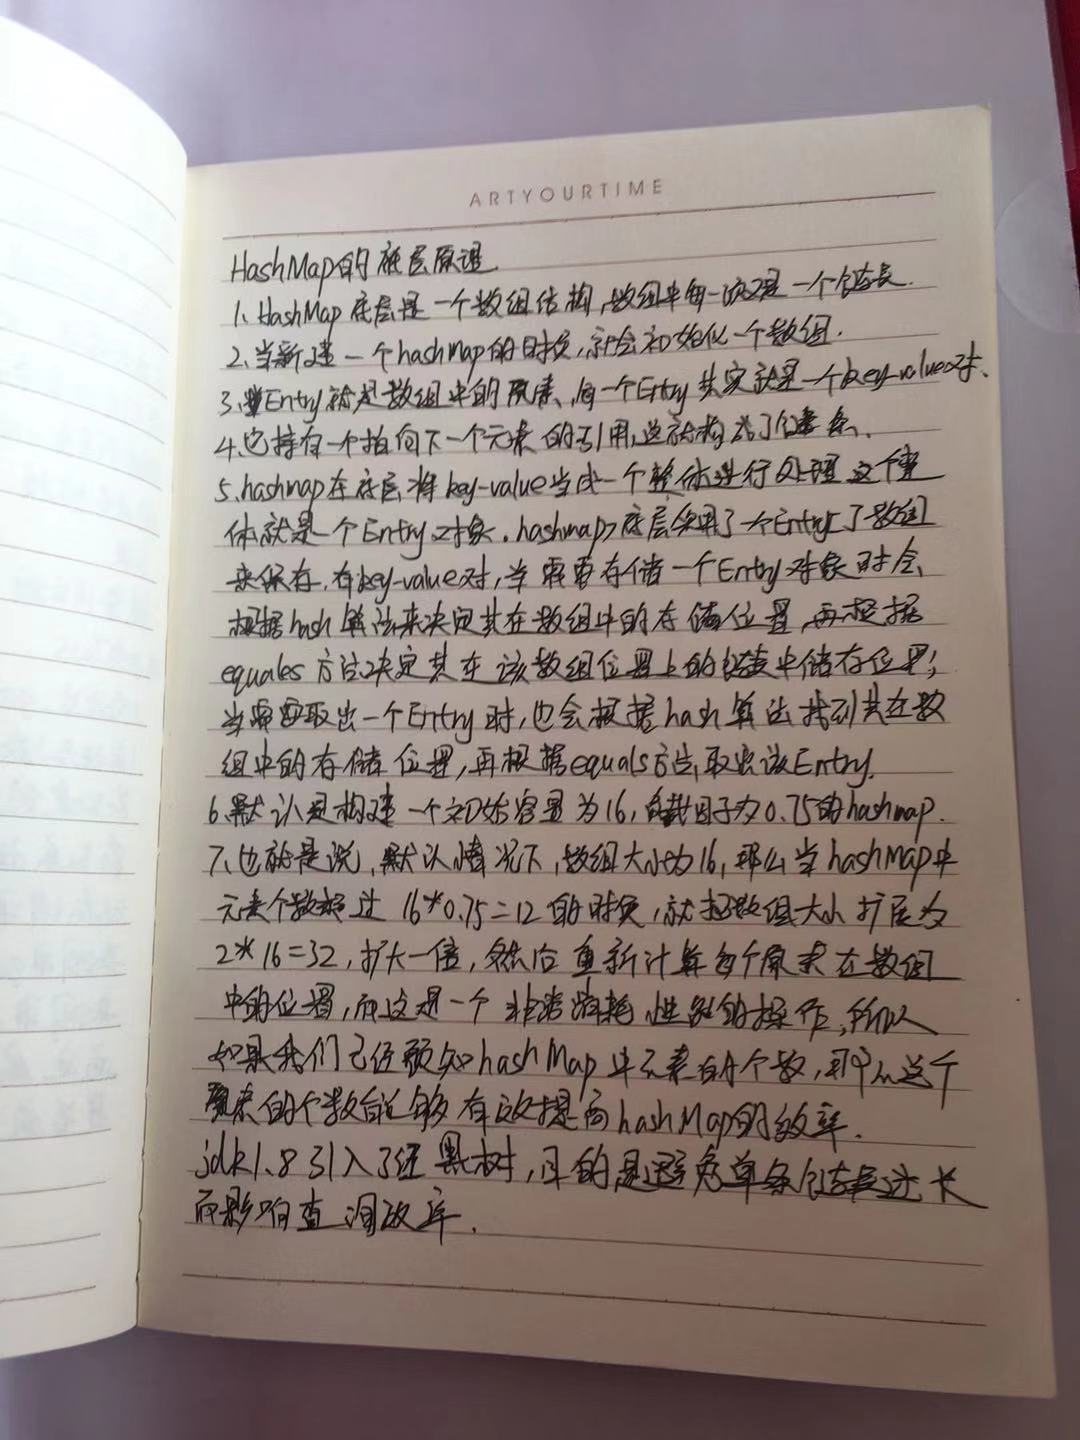 ARTYOURTIME
HashMap的底层原理
1、HashMap底层是一个数组结构,数组中每一项又是一个链表.
2、当新建一个hashMap的时候,就会初始化一个数组.
3、Entry就是数组中的元素,每一个Entry其实就是一个key-value对、
4、它持有一个指向下一个元素的引用,这就构成了链表.
5、hashmap在底层将key-value当成一个整体进行处理 这个整
体就是一个Entry对象.hashmap底层采用了一个Entry了数组
来保存,有key-value对,当需要存储一个Entry对象时会,
根据hash算法来决定其在数组中的存储位置,再根据
equales方法决定其在该数组位置上的链表中储存位置;
当需要取出一个Entry时,也会根据hash算法找到其在数
组中的存储位置,再根据equals方法,取出该Entry.
6、默认是构建一个初始容量为16,负载因子为0.75的hashmap.
7、也就是说,默认情况下,数组大小为16,那么当hashMap中
元素个数超过16*0.75=12的时候,就把数组大小扩展为
2*16=32,扩大一倍,然后重新计算每个原素在数组
中的位置,而这是一个非常消耗性能的操作,所以
如果我们已经预知hashMap中元素的个数,那么这个
元素的个数能够有效提高hashMap的效率.
jdk1.8引入了红黑树,目的是避免单条链表过长
而影响查询效率.